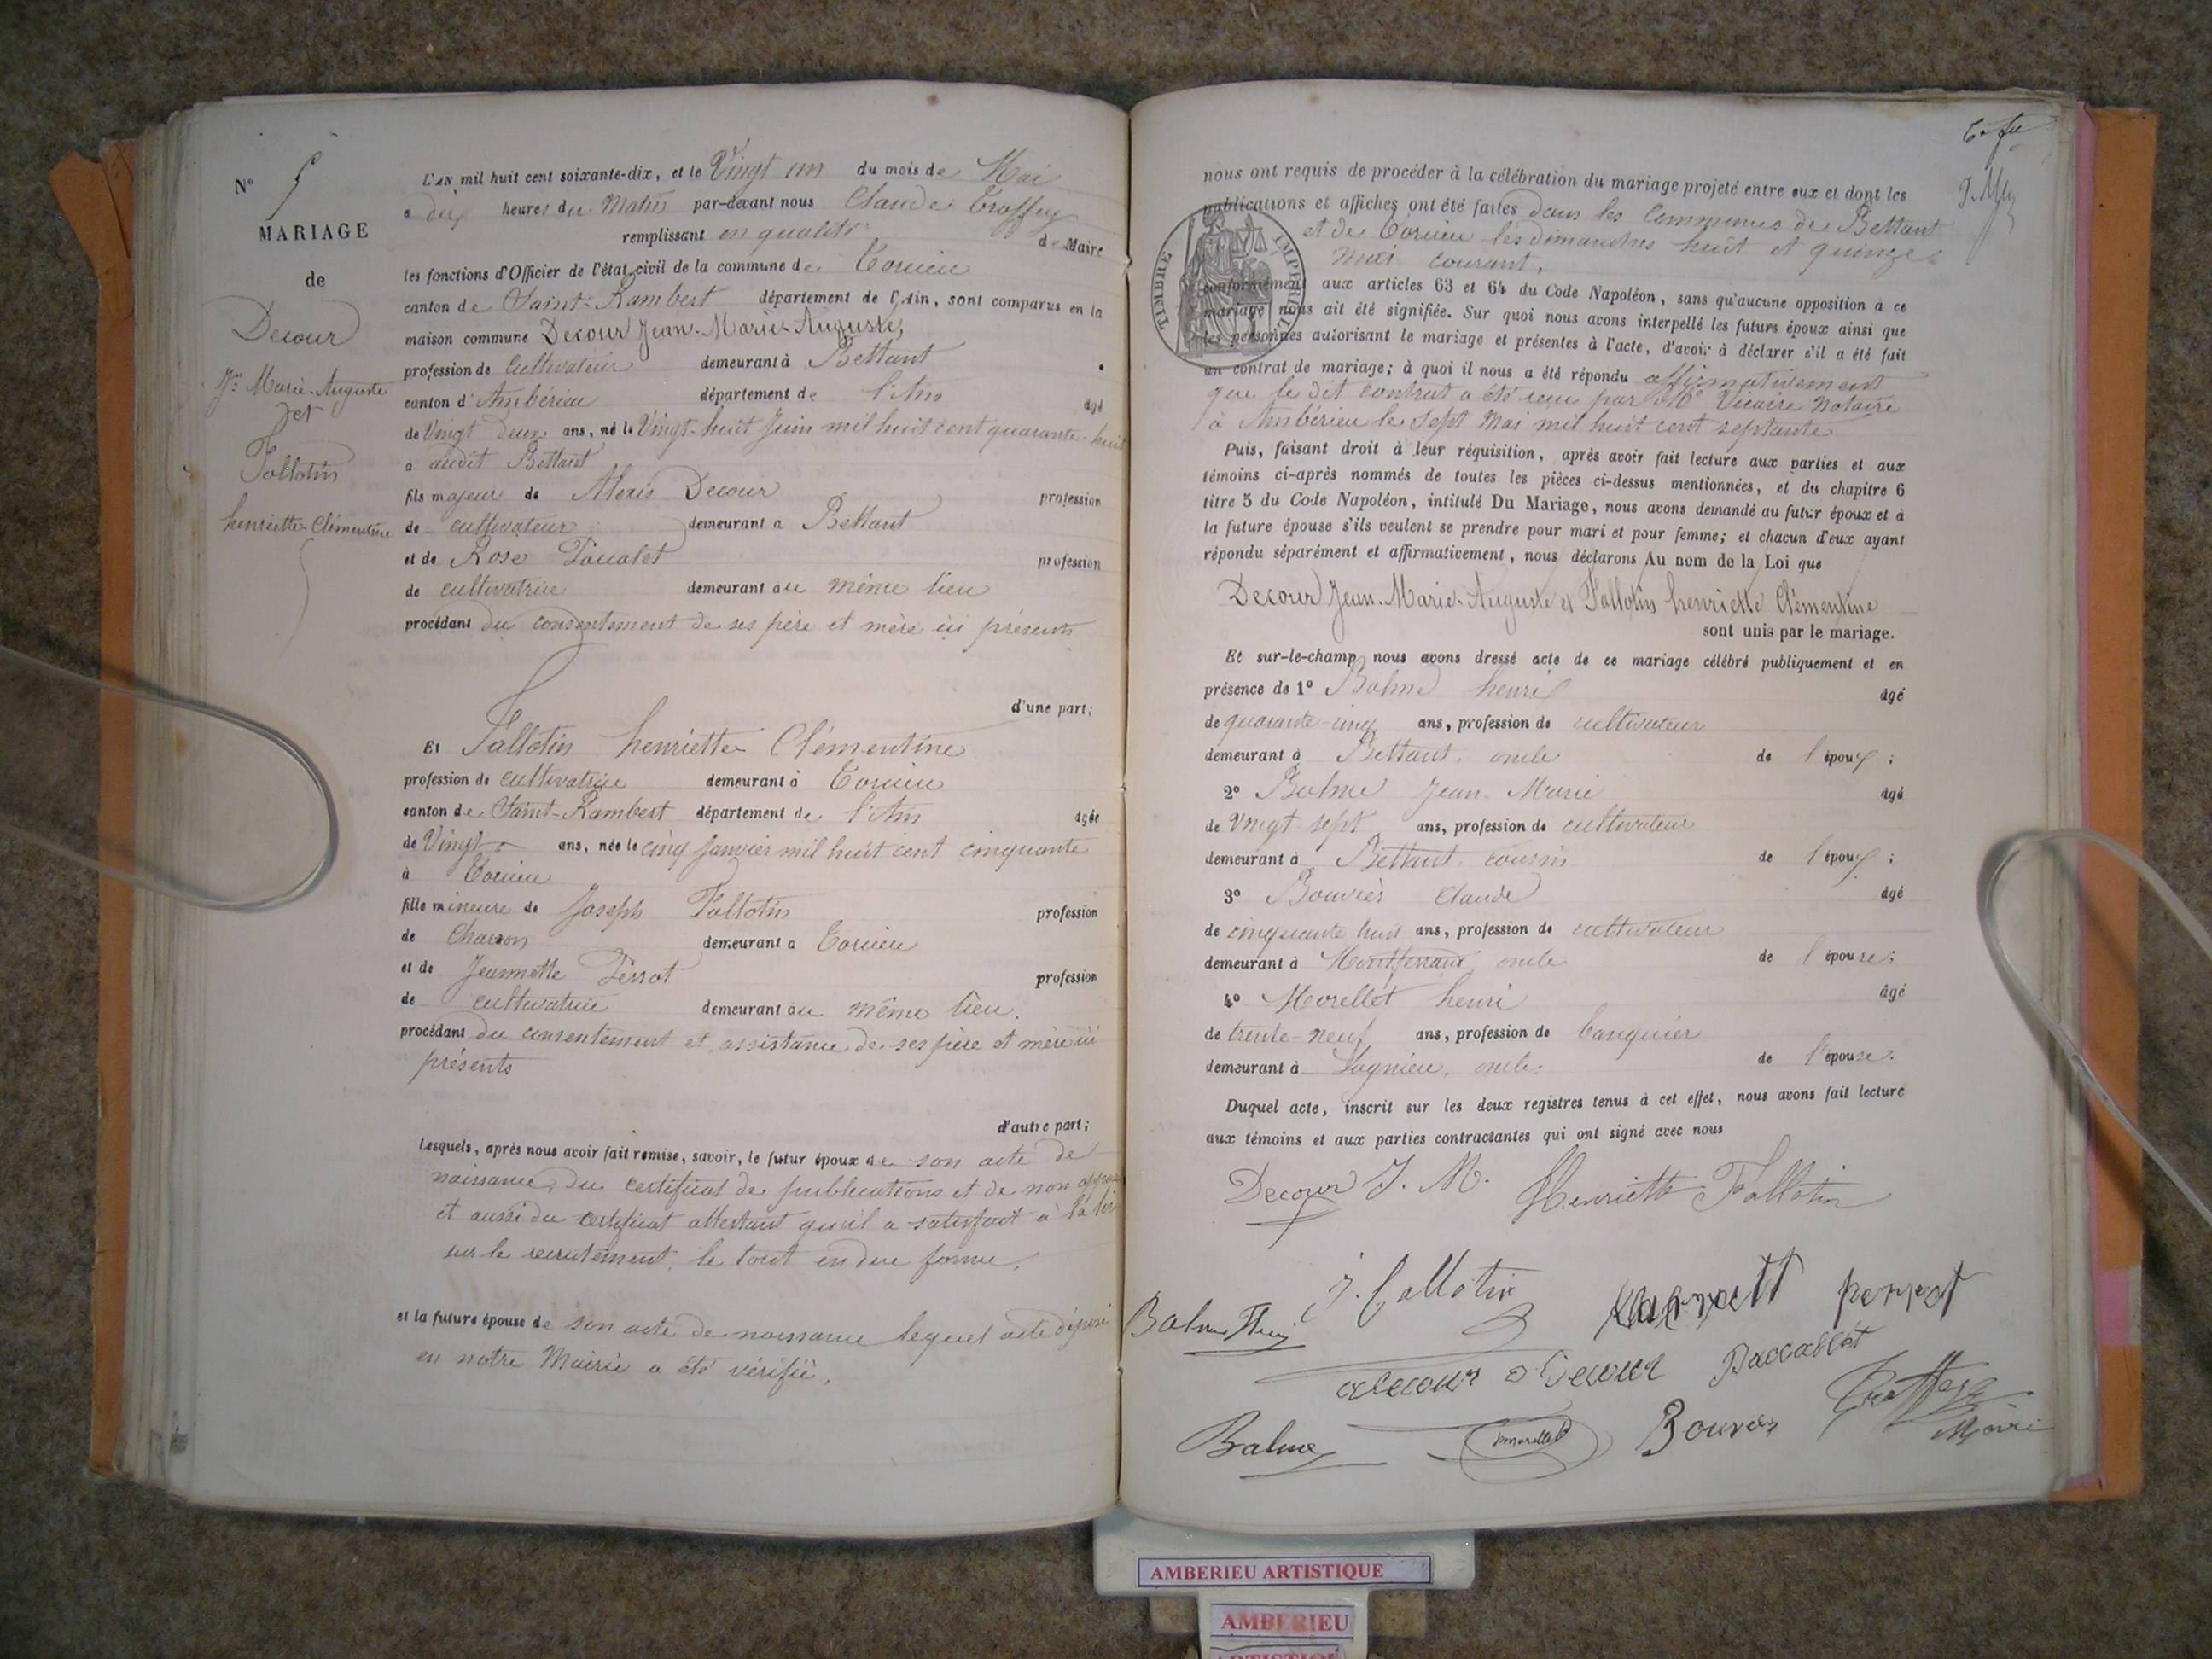 N° 5
MARIAGE
de
Decour
Jn Marie-Auguste
et
Fallotin
henriette-Clémentine
L'AN mil huit cent soixante-dix, et le Vingt un du mois de Mai
à dix heures du Matin par-devant nous Claude Troffey
remplissant en qualité de Maire
les fonctions d'Officier de l'état civil de la commune de Torcieu
canton de Saint-Rambert département de l'Ain, sont comparus en la
maison commune Decour Jean-Marie-Auguste,
profession de Cultivateur demeurant à Bettant
canton d'Ambérieu département de l'Ain âgé
de Vingt deux ans, né le Vingt-huit Juin mil huit cent quarante-huit
à audit Bettant
fils majeur de Alexis Decour profession
de cultivateur demeurant à Bettant
et de Rose profession
de cultivatrice demeurant au même lieu
procédant du consentement de ses père et mère ici présents
d'une part;
Et Fallotin henriette Clémentine
profession de cultivatrice demeurant à Torcieu
canton de Saint-Rambert département de l'Ain âgée
de Vingt ans, née le cinq Janvier mil huit cent cinquante
à Torcieu
fille mineure de Joseph Fallotin profession
de Charron demeurant à Torcieu
et de Jeannette Perrot profession
de cultivatrice demeurant au même lieu.
procédant du consentement et assistance de ses père et mère ici
présents
d'autre part;
Lesquels, après nous avoir fait remise, savoir, le futur époux de son acte de
naissance, du certificat de publications et de non
et aussi du certificat attestant qu'il a satisfait à la loi
sur le recrutement, le tout en due forme.
et la future épouse de son acte de naissance lequel acte déposé
en notre Mairie a été vérifié.
nous ont requis de procéder à la célébration du mariage projeté entre eux et dont les
publications et affiches ont été faites dans les Communes de Bettant
et de Torcieu les dimanches huit et quinze
mai courant,
TIMBRE IMPERIAL
conformément aux articles 63 et 64 du Code Napoléon, sans qu'aucune opposition à ce
mariage nous ait été signifiée. Sur quoi nous avons interpellé les futurs époux ainsi que
les personnes autorisant le mariage et présentes à l'acte, d'avoir à déclarer s'il a été fait
un contrat de mariage; à quoi il nous a été répondu affirmativement
que le dit contrat a été reçu par Me Vicaire Notaire
à Ambérieu le sept mai mil huit cent septante
Puis, faisant droit à leur réquisition, après avoir fait lecture aux parties et aux
témoins ci-après nommés de toutes les pièces ci-dessus mentionnées, et du chapitre 6
titre 5 du Code Napoléon, intitulé Du Mariage, nous avons demandé au futur époux et à
la future épouse s'ils veulent se prendre pour mari et pour femme; et chacun d'eux ayant
répondu séparément et affirmativement, nous déclarons Au nom de la Loi que
Decour Jean-Marie-Auguste et Fallotin henriette Clémentine
sont unis par le mariage.
Et sur-le-champ nous avons dressé acte de ce mariage célébré publiquement et en
présence de 1° Balme henri âgé
de quarante-cinq ans, profession de cultivateur
demeurant à Bettant, oncle de l'époux;
2° Balme Jean-Marie âgé
de vingt-sept ans, profession de cultivateur
demeurant à Bettant, cousin de l'époux;
3° Bouvier Claude âgé
de cinquante huit ans, profession de cultivateur
demeurant à oncle de l'épouse;
4° Morellet henri âgé
de trente-neuf ans, profession de banquier
demeurant à Lagnieu, oncle de l'épouse.
Duquel acte, inscrit sur les deux registres tenus à cet effet, nous avons fait lecture
aux témoins et aux parties contractantes qui ont signé avec nous
Decour J. M. Henriette Fallotin
J. Fallotin perrot
Balme
Decour
Balme morellet Bouvier Maire
AMBERIEU ARTISTIQUE
AMBERIEU
ARTISTIQUE